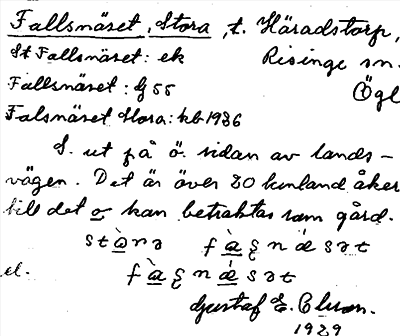 Fallsnäset, Stora, t. Häradstorp,
St Fallsnäset: ek Risinge sn.
Fallsnäset: G 55 Ögl
Falsnäset Stora: kb 1926
S. ut på ö. sidan av lands-
vägen. Det är över 20 kunland åker
till det o kan betraktas som gård.
stàna fàꞩnǽsət
el. fàꞩnǽsət
Gustaf E.
1929